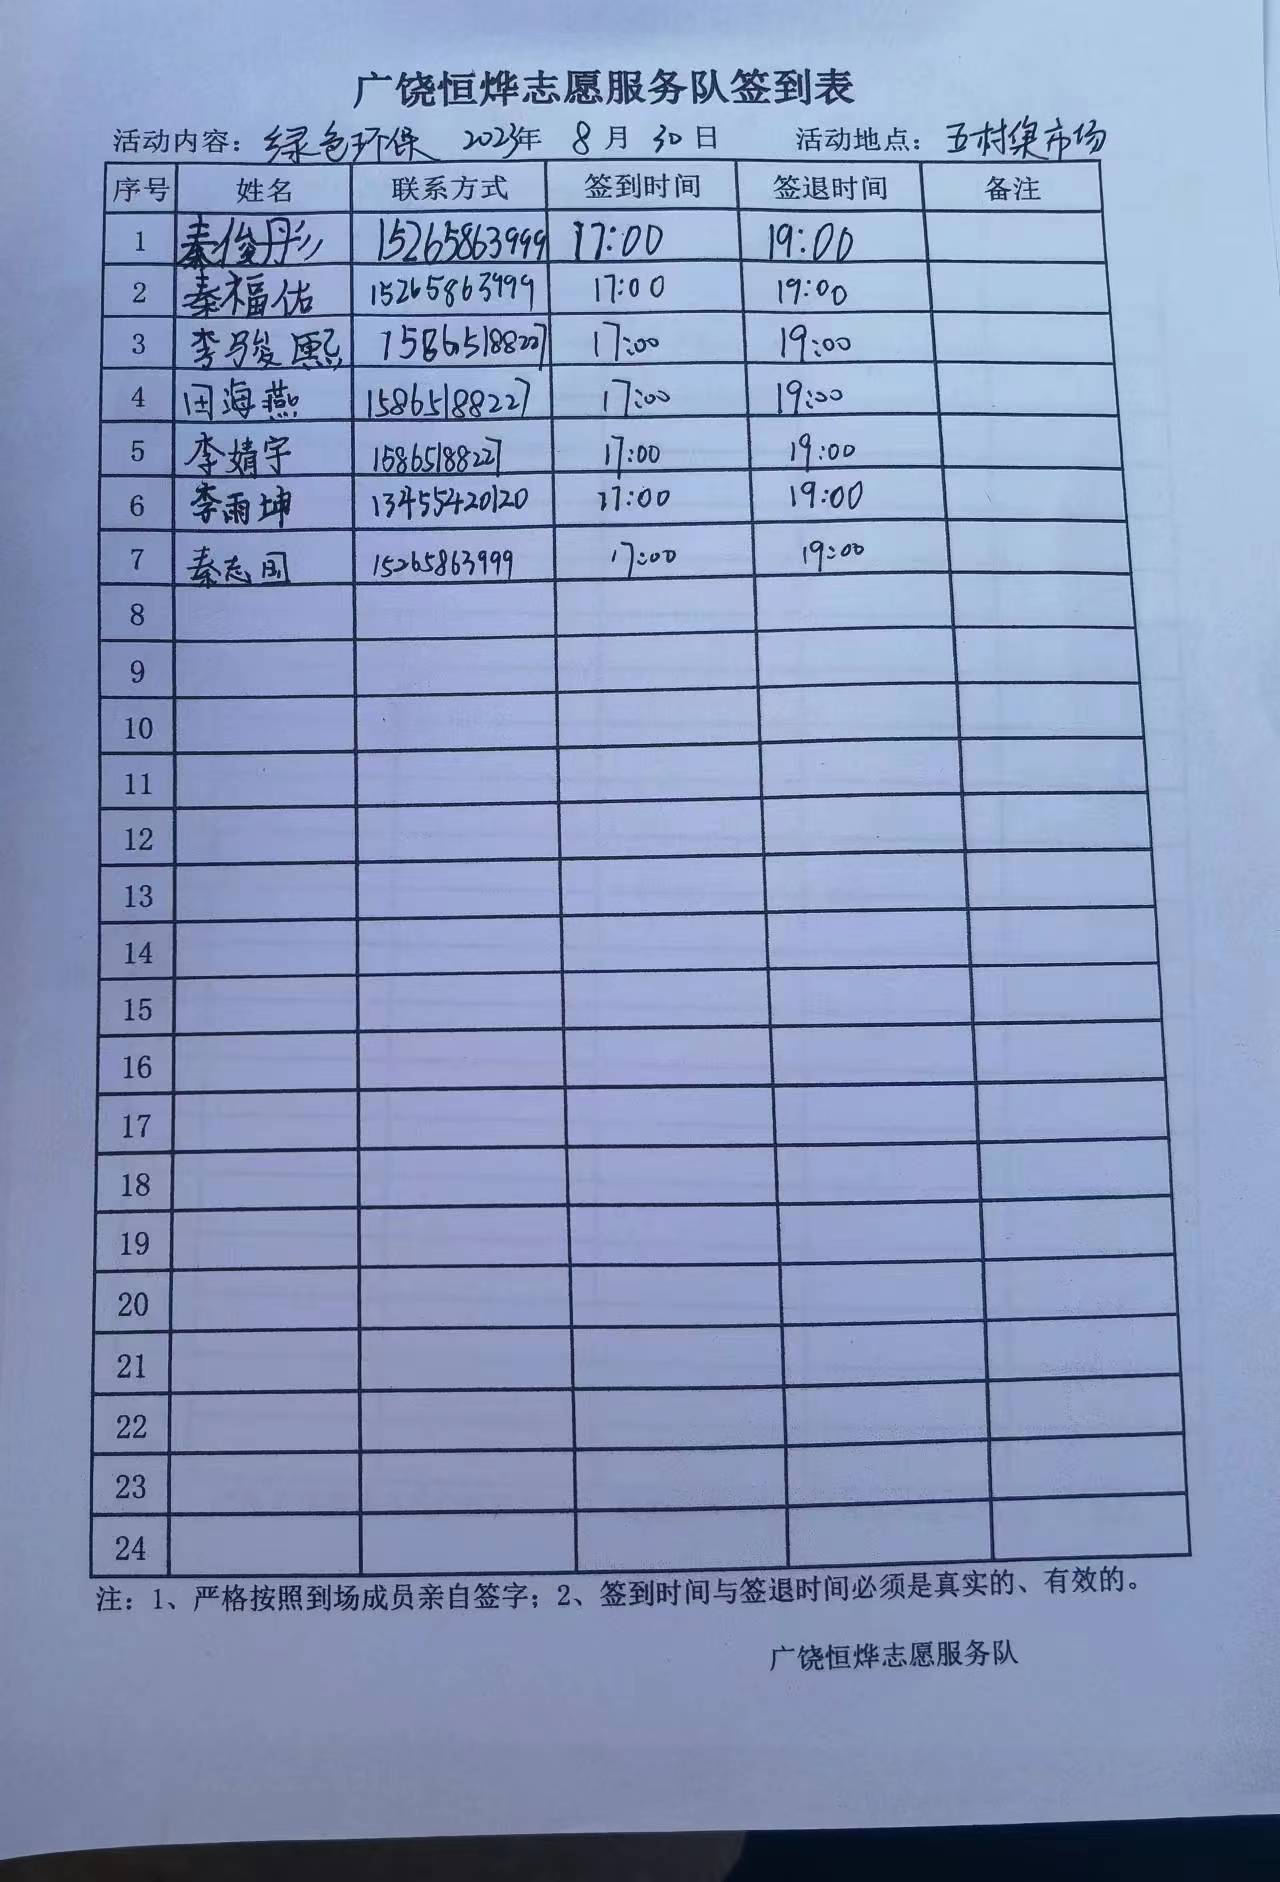 广饶恒烨志愿服务队签到表
活动内容：绿色环保 2023年 8月 30日 活动地点：五村集市场
序号 姓名 联系方式 签到时间 签退时间 备注
1 秦俊彤 15265863999 17:00 19:00
2 秦福佑 15265863999 17:00 19:00
3 李骏熙 15865188227 17:00 19:00
4 田海燕 15865188227 17:00 19:00
5 李婧宇 15865188227 17:00 19:00
6 李雨坤 13455420120 17:00 19:00
7 秦志国 15265863999 17:00 19:00
8
9
10
11
12
13
14
15
16
17
18
19
20
21
22
23
24
注：1、严格按照到场成员亲自签字；2、签到时间与签退时间必须是真实的、有效的。
广饶恒烨志愿服务队